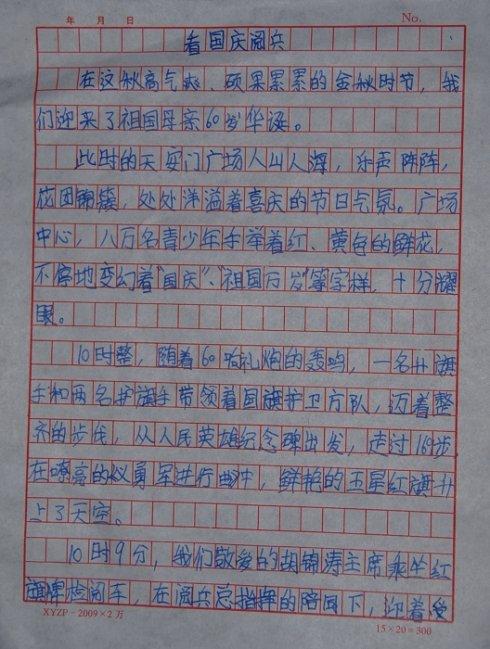 年 月 日 No.
看国庆阅兵
在这秋高气爽、硕果累累的金秋时节，我
们迎来了祖国母亲60岁华诞。
此时的天安门广场人山人海，乐声阵阵，
花团锦簇，处处洋溢着喜庆的节日气氛。广场
中心，八万名青少年手举着红、黄色的鲜花，
不停地变幻着“国庆”、“祖国万岁”等字样，十分耀
眼。
10时整，随着60响礼炮的轰鸣，一名升旗
手和两名护旗手带领着国旗护卫方队，迈着整
齐的步伐，从人民英雄纪念碑出发，走过169步，
在嘹亮的义勇军进行曲中，鲜艳的五星红旗升
上了天空。
10时9分，我们敬爱的胡锦涛主席乘坐红
旗牌检阅车，在阅兵总指挥的陪同下，迎着受
XYZP－2009×2万
15×20＝300